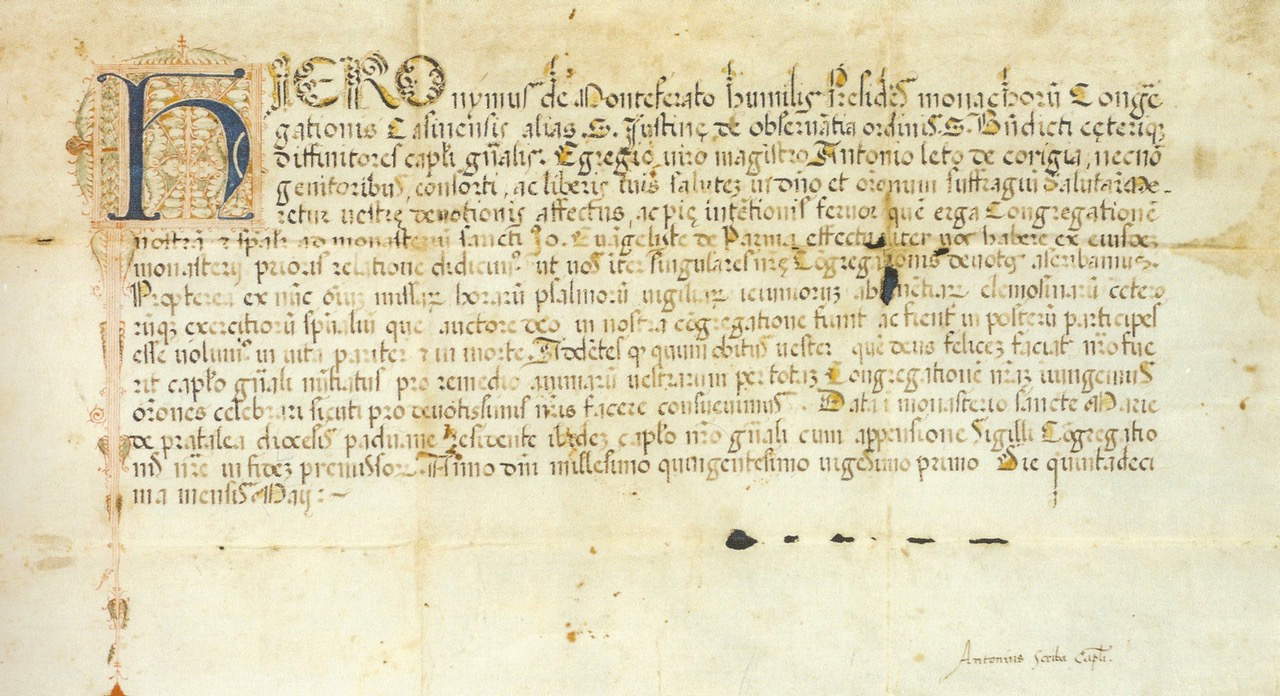 HIEROnymus de Monteferato humilis Presidēs monachorū Congre
gationis Casinensis alias .S. Justinę de observātia ordinis .S. Bn̄dicti cęteriqȝ
diffinitores capl̄i gn̄alis. Egregio viro magistro Antonio leto de corigia, necnō
genitoribus, consorti, ac liberis tuis salutez in dn̄o et or̄onum suffragiū salutarē.
retur vestrę devotionis affectus, ac pię intētionis fervor quē erga Congregationē
nostrā & sp̄ali ad monasteriū sancti Jo. Evāgeliste de Parma effectualiter vos habere ex eiusdez
monasterij prioris relatione didicimus ut vos iter singulares nr̄ę Cōgregationis devotos ascribamus.
Propterea ex nūc oīuz missar horarū psalmorū vigiliar ieiuniorūz abstinētiar elemosinarū cetero
rūqȝ exercitiorū sp̄ualiū que auctore deo in nostra cōgregatione fiunt ac fient in posterū participes
esse volum9 in vita pariter & in morte. Addētes qȝ quum obitus vester quē deus felicez faciat nr̄o fue
rit capl̄o gn̄ali nūtiatus pro remedio animarū vestrarum per totaz Congregationē nr̄az iungemus
or̄ones celebrari sicuti pro devotissimis nr̄is facere consuevimus. Data i monasterio sancte Marie
de pratalea diocesis paduane Residente ibidez capl̄o nr̄o gn̄ali cum appensione Sigilli Cōgregatio
nis nr̄e in fidez premissor. Anno dn̄i millesimo quingentesimo vigesimo primo Die quintadeci
ma mensis Maij :~
Antonius Scriba Capl̄i.